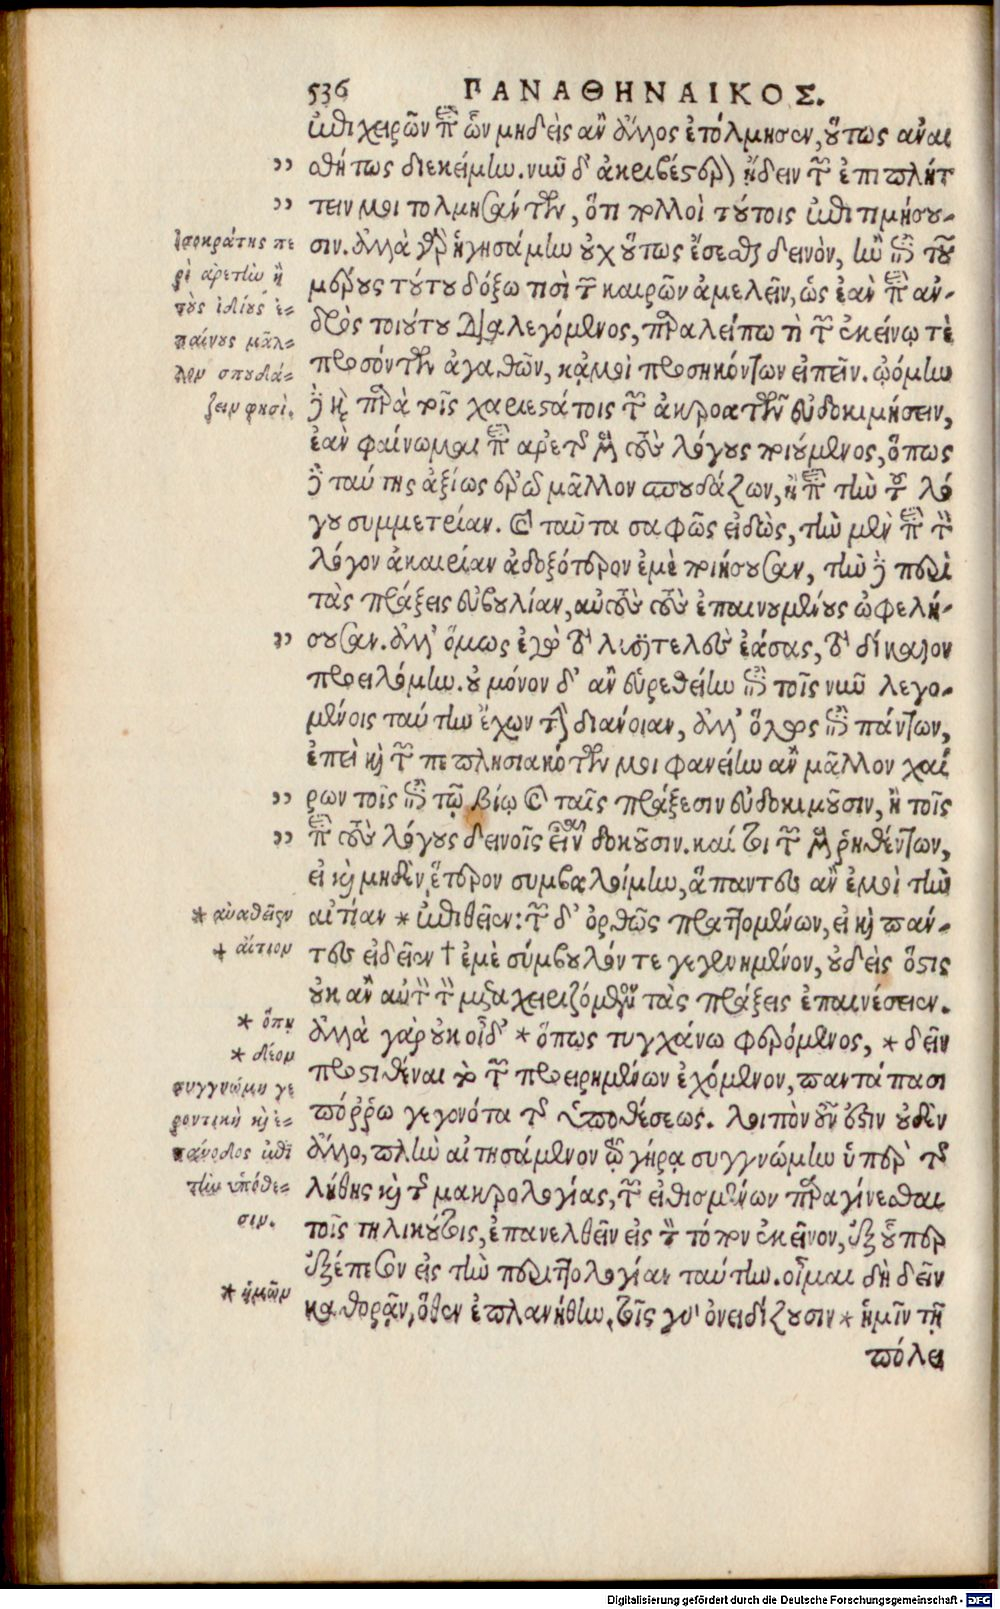 536 ΠΑΝΑΘΗΝΑΙΚΟΣ.
ἐπιχειρῶν περὶ ὧν μηδεὶς ἂν ἄλλος ἐτόλμησεν, οὕτως ἀναι
σθήτως διεκείμην. νῦν δ' ἀκριβέστερον ᾔδειν τῶν ἐπιπλήτ
τειν μοι τολμησάντων, ὅτι πολλοὶ τούτοις ἐπιτιμήσου-
σιν. ἀλλὰ γὰρ ἡγησάμην οὐχ οὕτως ἔσεσθαι δεινὸν, ἢν ἐπὶ τοῦ
μέρους τούτου δόξω τισὶ τῶν καιρῶν ἀμελεῖν, ὡς ἐὰν περὶ ἀν-
δρὸς τοιούτου διαλεγόμενος, παραλείπω τὶ τῶν ἐκείνῳ τὲ
προσόντων ἀγαθῶν, κᾀμοὶ προσηκόντων εἰπεῖν. ᾠόμην
δὲ καὶ παρὰ τοῖς χαριεστάτοις τῶν ἀκροατῶν εὐδοκιμήσειν,
ἐὰν φαίνωμαι περὶ ἀρετῆς μὲν τοὺς λόγους ποιούμενος, ὅπως
δὲ ταύτης ἀξίως ἐρῶ μᾶλλον σπουδάζων, ἢ περὶ τὴν τοῦ λό
γου συμμετρίαν. καὶ ταῦτα σαφῶς εἰδὼς, τὴν μὲν περὶ τὸν
λόγον ἀκαιρίαν ἀδοξότερον ἐμὲ ποιήσουσαν, τὴν δὲ περὶ
τὰς πράξεις εὐβουλίαν, αὐτοὺς τοὺς ἐπαινουμένους ὠφελή-
σουσαν. ἀλλ' ὅμως ἐγὼ τὸ λυσιτελὲς ἐάσας, τὸ δίκαιον
προειλόμην. οὐ μόνον δ' ἂν εὑρεθείην ἐπὶ τοῖς νῦν λεγο-
μένοις ταύτην ἔχων τὴν διάνοιαν, ἀλλ' ὅλως ἐπὶ πάντων,
ἐπεὶ καὶ τῶν πεπλησιακότων μοι φανείην ἂν μᾶλλον χαί
ρων τοῖς ἐπὶ τῷ βίῳ καὶ ταῖς πράξεσιν εὐδοκιμοῦσιν, ἢ τοῖς
περὶ τοὺς λόγους δεινοῖς εἶναι δοκοῦσιν. καί τοι τῶν μὲν ῥηθέντων,
εἰ καὶ μηδὲν ἕτερον συμβαλοίμην, ἅπαντες ἂν ἐμοὶ τὴν
αἰτίαν * ἐπιθεῖεν: τῶν δ' ὀρθῶς πραττομένων, εἰ καὶ πάν-
τες εἰδεῖεν † ἐμὲ σύμβουλόν τε γεγενημένον, οὐδεὶς ὅστις
οὐκ ἂν αὐτὸν τὸν μεταχειριζόμενον τὰς πράξεις ἐπαινέσειεν.
ἀλλὰ γὰρ οὐκ οἶδ' * ὅπως τυγχάνω φερόμενος, * δεῖν
προστιθέναι τὸ τῶν προειρημένων ἐχόμενον, παντάπασι
πόῤῥω γεγονότα τῆς ὑποθέσεως. λοιπὸν οὖν ἐστιν οὐδὲν
ἄλλο, πλὴν αἰτησάμενον τῷ γήρᾳ συγγνώμην ὑπὲρ τῆς
λήθης καὶ τῆς μακρολογίας, τῶν εἰθισμένων παραγίνεσθαι
τοῖς τηλικούτοις, ἐπανελθεῖν εἰς τὸν τόπον ἐκεῖνον, ἐξ οὗπερ
ἐξέπεσον εἰς τὴν περιττολογίαν ταύτην. οἶμαι δὴ δεῖν
καθορᾷν, ὅθεν ἐπλανήθην, τοῖς γὰρ ὀνειδίζουσιν * ἡμῖν τῇ
πόλει
Ἰσοκράτης πε
ρὶ ἀρετὴν ἢ
τοὺς ἰδίους ἐ-
παίνους μᾶλ-
λον σπουδά-
ζειν φησί.
* ἀναθεῖεν
+ αἴτιον
* ὅπῃ
* δέον
συγγνώμη γε
ροντικὴ καὶ ἐ-
πάνοδος ἐπὶ
τὴν ὑπόθε-
σιν.
* ἡμῶν
Digitalisierung gefördert durch die Deutsche Forschungsgemeinschaft - DFG